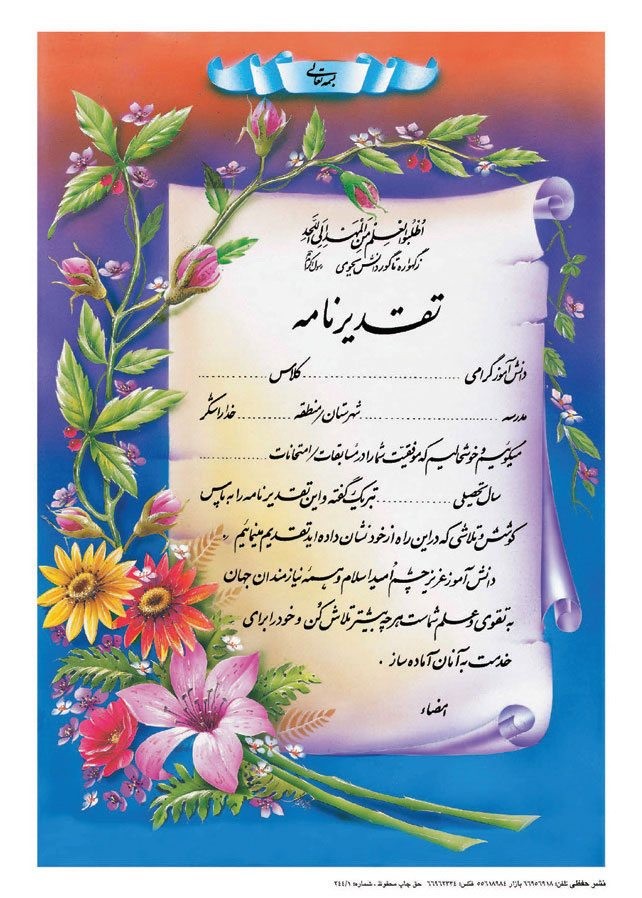 بسمه تعالی
اُطْلُبُوا الْعِلْمَ مِنَ الْمَهْدِ اِلَی اللَّحَدِ
زگهواره تا گور دانش بجوی رسول اکرم
تقدیرنامه
دانش آموز گرامی .................... کلاس ....................
مدرسه .................... شهرستان / منطقه ............ خدا را شکر
میگوئیم و خوشحالیم که موفقیّت شما را در مسابقات / امتحانات ............
سال تحصیلی ............ تبریک گفته و این تقدیرنامه را به پاس
کوشش و تلاشی که در این راه از خود نشان داده اید تقدیم مینمائیم .
دانش آموز عزیز چشم اُمید اسلام و همهٔ نیازمندان جهان
به تقوی و علم شماست هر چه بیشتر تلاش کُن و خود را برای
خدمت به آنان آماده ساز .
امضاء
نشر حفظی تلفن: ۶۶۹۵۶۹۱۸ بازار ۵۵۶۱۸۹۸۴ فکس: ۶۶۹۶۲۳۳۴ حق چاپ محفوظ ، شماره: ۲۴۴/۱